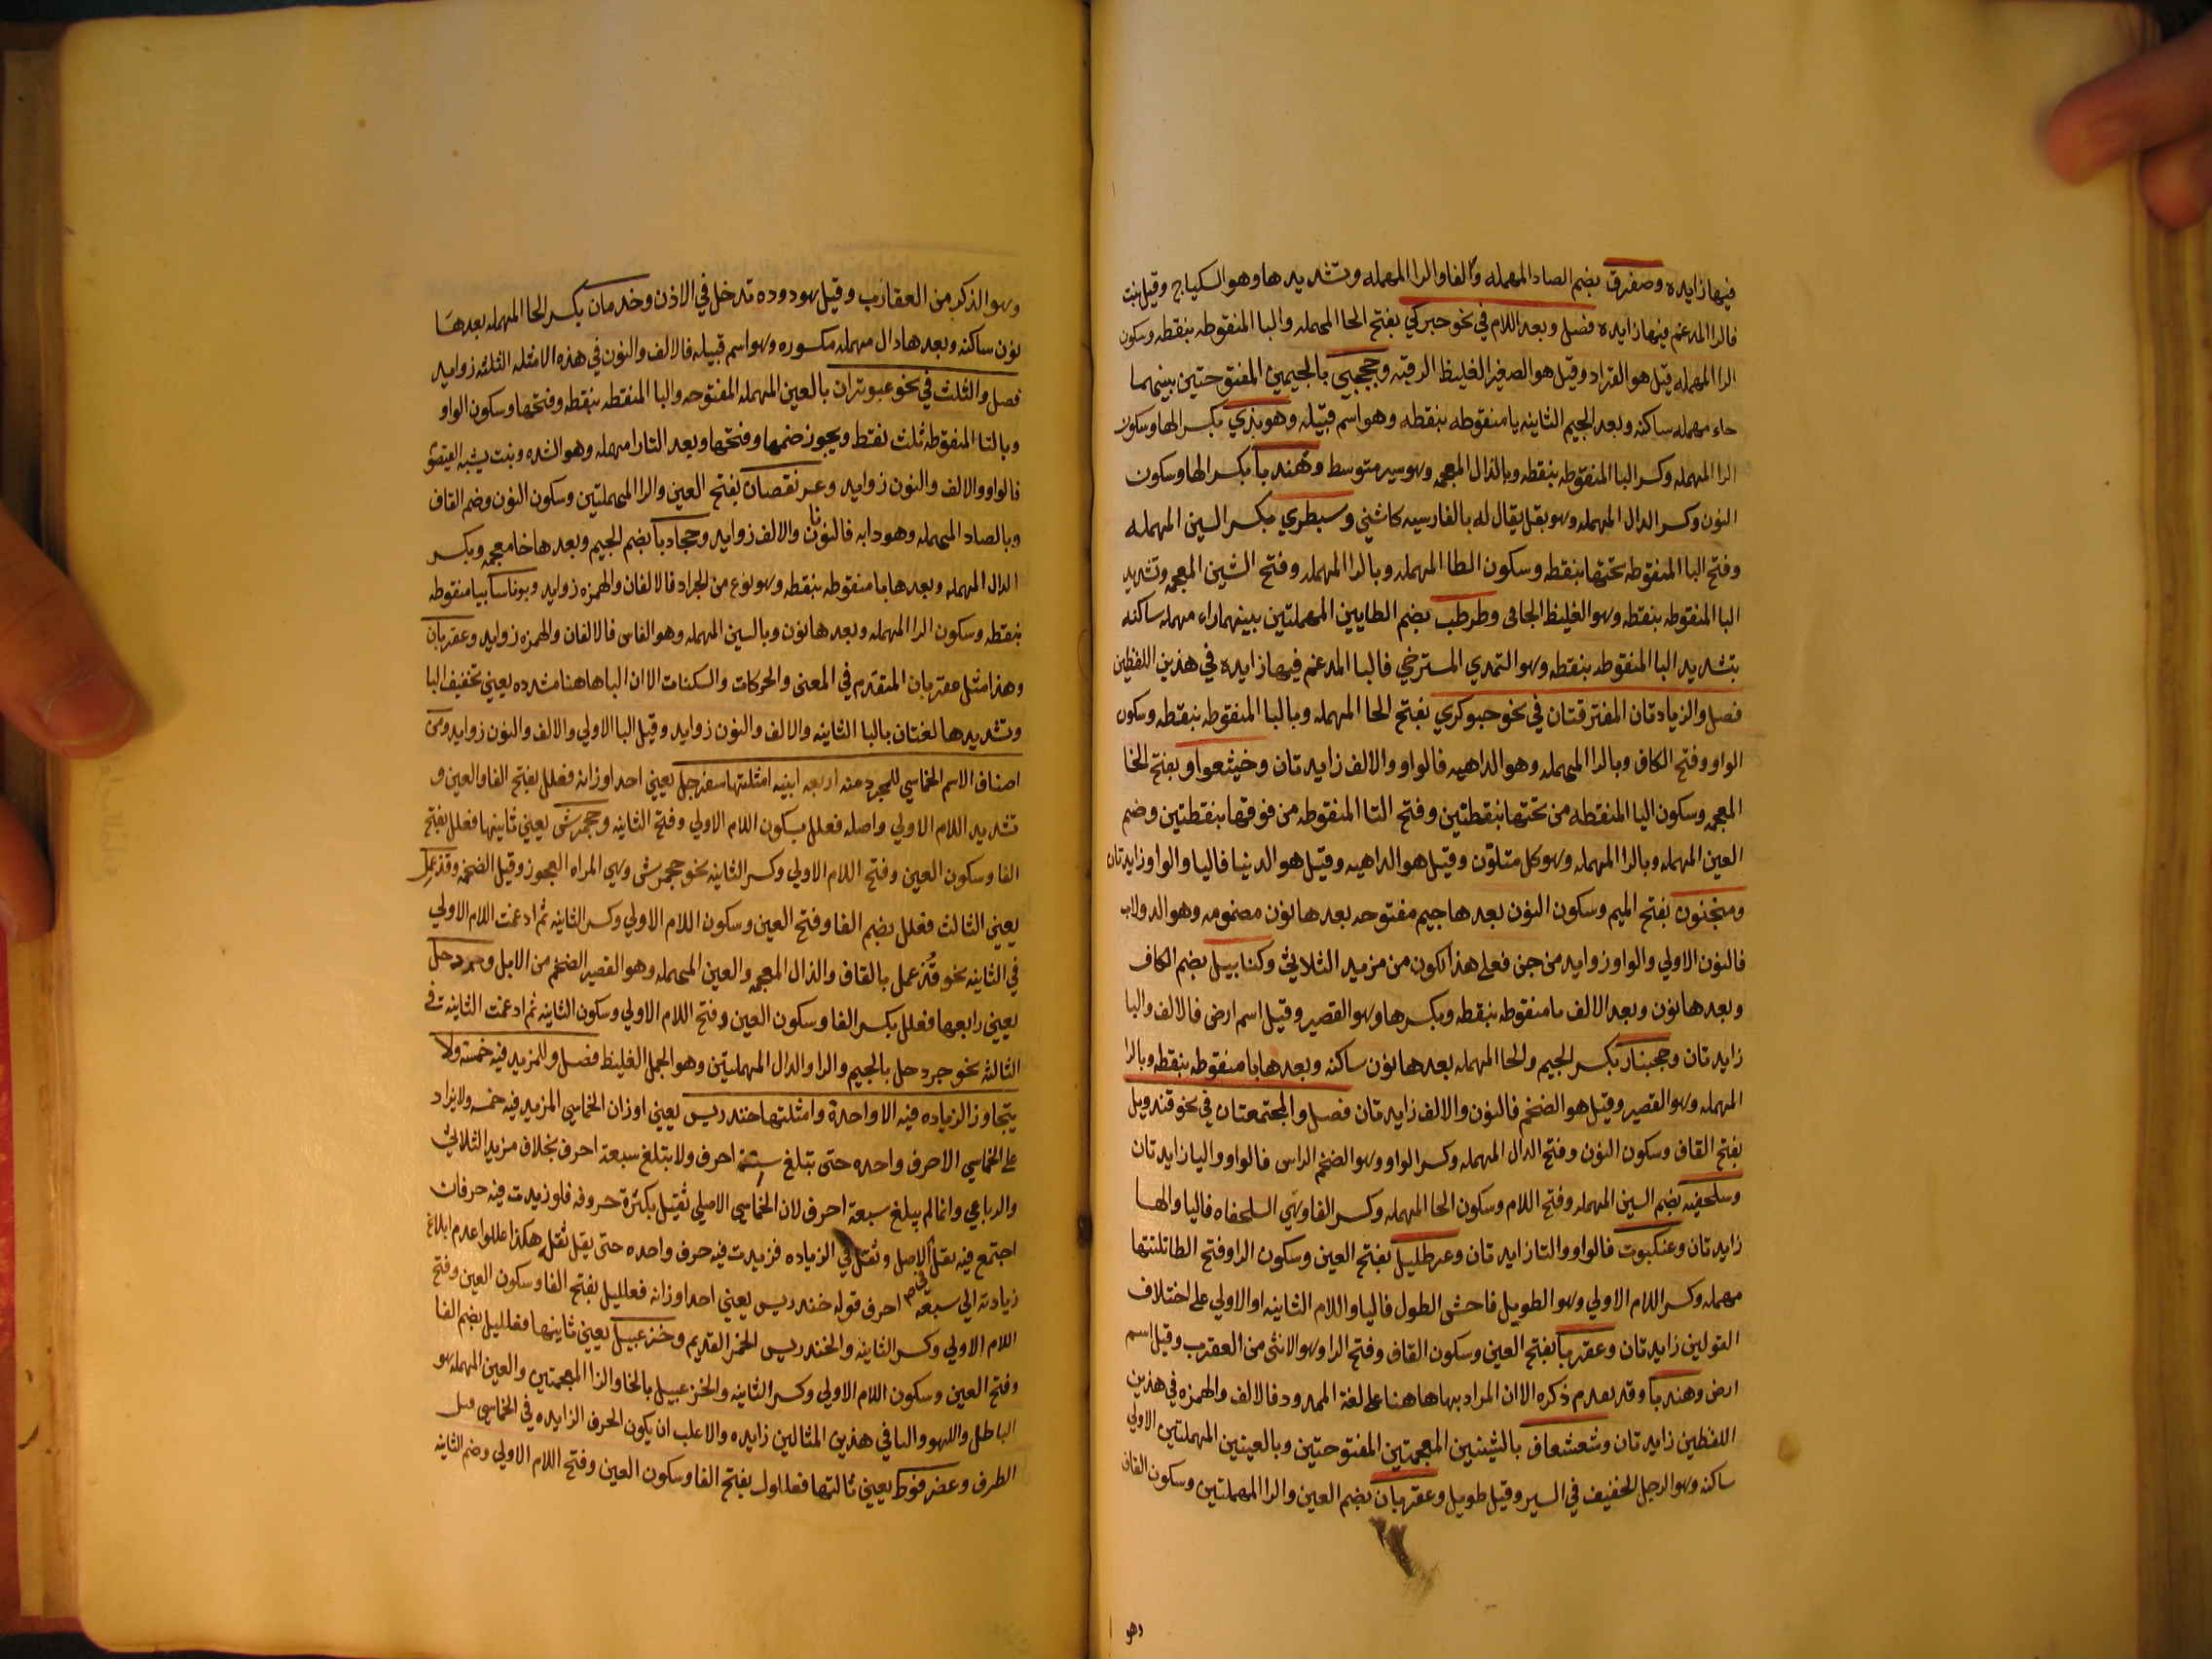 فيها زايده وصفرق بضم الصاد المهمله والفا والرا المهمله وتشديدها وهو السكباج وقيل بنت
فالرا المدغم فيها زايده فصل وبعد اللام في نحو حبركي بفتح الحا المهمله والبا المنقوطه بنقطه وسكون
الرا المهمله قيل هو القراد وقيل هو الصغير الغليظ الرقبه وجحجبي بالجيمين المفتوحتين بينهما
حاء مهمله ساكنه وبعد الجيم الثانيه با منقوطه بنقطه وهو اسم قبيله وهربذي بكسر الها وسكون
الرا المهمله وكسر البا المنقوطه بنقطه وبالذال المعجمه وهو سير متوسط وهندبا بكسر الها وسكون
النون وكسر الدال المهمله وهو بقل يقال له بالفارسيه كاشني وسبطري بكسر السين المهمله
وفتح البا المنقوطه تحتها بنقطه وسكون الطا المهمله وبالرا المهمله وفتح الشين المعجمه وتشديد
البا المنقوطه بنقطه وهو الغليظ الجافي وطرطب بضم الطايين المهملتين بينهما راء مهمله ساكنه
بتشديد البا المنقوطه بنقطه وهو الثدي المسترخي فالبا المدغم فيها زايده في هذين اللفظين
فصل والزيادتان المفترقتان في نحو حبوكري بفتح الحا المهمله وبالبا المنقوطه بنقطه وسكون
الواو وفتح الكاف وبالرا المهمله وهو الداهيه فالواو والالف زايدتان وخيثعوا و بفتح الخا
المعجمه وسكون اليا المنقطه من تحتها بنقطتين وفتح التا المنقوطه من فوقها بنقطتين وضم
العين المهمله وبالرا المهمله وهو كل متلون وقيل هو الداهيه وقيل هو الدنيا فاليا والواو زايدتان
ومنجنون بفتح الميم وسكون النون بعدها جيم مفتوحه بعدها نون مضمومه وهو الدولاب
فالنون الاولي والواو زوايد من جن فعلي هذا تكون من مزيد الثلاثي وكنابيل بضم الكاف
وبعدها نون وبعد الالف با منقوطه بنقطه وبكسرها وهو القصير وقيل اسم ارض فالالف والبا
زايدتان وجحنبار بكسر الجيم والحا المهمله بعدها نون ساكنه وبعدها با منقوطه بنقطه وبالرا
المهمله وهو القصير وقيل هو الضخم فالنون والالف زايدتان فصل والمجتمعتان في نحو قندويل
بفتح القاف وسكون النون وفتح الدال المهمله وكسر الواو وهو الضخم الراس فالواو واليا زايدتان
وسلحفيه بضم السين المهمله وفتح اللام وسكون الحا المهمله وكسر الفا وهي السلحفاه فاليا والها
زايدتان وعنكبوت فالواو والتا زايدتان وعرطليل بفتح العين وسكون الرا وفتح الطا ثلثتها
مهمله وكسر اللام الاولي وهو الطويل فاحش الطول فاليا واللام الثانيه او الاولي علي اختلاف
القولين زايدتان وعقربا بفتح العين وسكون القاف وفتح الرا وهو الانثى من العقرب وقيل اسم
ارض وهندبا وقد تعدم ذكره الا ان المراد بها هاهنا علي لغة الممدود فالالف والهمزه في هذين
اللفظين زايدتان وشعشعاف بالشينين المعجمتين المفتوحتين وبالعينين المهملتين الاولي
ساكنه وهو الرجل الخفيف في السير وقيل طويل وعقربان بضم العين والرا المهملتين وسكون القاف
وهو
وهو الذكر من العقارب وقيل هو دوده تدخل في الاذن وخدمان بكسر الحا المهمله بعدها
نون ساكنه وبعدها دال مهمله مكسوره وهو اسم قبيله فالالف والنون في هذه الامثله الثلثه زوايد
فصل والثلث في نحو عبوثران بالعين المهمله المفتوحه والبا المنقطه بنقطه وفتحها وسكون الواو
وبالثا المنقوطه ثلث نقط ويجوز ضمها وفتحها وبعد الثا را مهمله وهو الشده ونبت يشبه القيصوم
فالواو والالف والنون زوايد وعرنقصان بفتح العين والرا المهملتين وسكون النون وضم القاف
وبالصاد المهمله وهو دابه فالنونا ن والالف زوايد وجخادبا بضم الجيم وبعدها خا معجمه وبكسر
الدال المهمله وبعدها با منقوطه بنقطه وهو نوع من الجراد فالالفان والهمزه زوايد وبرناسا ببا منقوطه
بنقطه وسكون الرا المهمله وبعدها نون وبالسين المهمله وهو الناس فالالفان والهمزه زوايد وعقربان
وهذا مثل عقربان المتقدم في المعنى والحركات والسكنات الا ان البا هاهنا مشدده يعني تخفيف البا
وتشديدها لغتان بالبا الثانيه والالف والنون زوايد وقيل البا الاولي والالف والنون زوايد ومن
اصناف الاسم الخماسي للمجرد منه اربعه ابنيه امثلتها سفرجل يعني احد اوزانه فعلل بفتح الفا والعين و
تشديد اللام الاولي واصله فعلل بسكون اللام الاولي وفتح الثانيه وجحمرش يعني ثانيها فعلل بفتح
الفا وسكون العين وفتح اللام الاولي وكسر الثانيه نحو جحمرش وهي المراه العجوز وقيل الضخمه وقذعمل
يعني الثالث فعلل بضم الفا وفتح العين وسكون اللام الاولي وكسر الثانيه ثم ادغمت اللام الاولي
في الثانيه نحو قذعمل بالقاف والذال المعجمه والعين المهمله وهو القصير الضخم من الابل وجردحل
يعني رابعها فعلل بكسر الفا وسكون العين وفتح اللام الاولي وسكون الثانيه ثم ادغمت الثانيه في
الثالثه نحو جردحل بالجيم والرا والدال المهملتين وهو الجمل الغليظ فصل وللمزيد فيه خمسه ولا
يتجاوز الزياده فيه الا واحدة وامثلتها خندريس يعني اوزان الخماسي المزيد فيه خمسه ولا يزاد
على الخماسي الا حرف واحد حتى تبلغ ستة احرف ولا بتلغ سبعة احرف بخلاف مزيد الثلاثي
والرباعي وانما لم يبلغ سبعة احرف لان الخماسي الاصلي ثقيل بكثرة حروفه فلو زيدت فيه حرفان
اجتمع فيه ثقل الاصل وثقل الزياده فزيدت فيه حرف واحده حتى يقل ثقله هكذا عللوا عدم ابلاغ
زيادته الي سبعة احرف قوله خندريس يعني احد اوزانه فعلليل بفتح الفا وسكون العين وفتح
اللام الاولي وكسر الثانيه والخندريس الخمر القديم وخزعبيل يعني ثانيها فعلليل بضم الفا
وفتح العين وسكون اللام الاولي وكسر الثانيه والخزعبيل بالخا والزا المعجمتين والعين المهمله هو
الباطل واللهو واليا في هذين المثالين زايده والاغلب ان يكون الحرف الزايده في الخماسي قبل
الطرف وعضرفوط يعني ثالثها فعللول بفتح الفا وسكون العين وفتح اللام الاولي وضم الثانيه